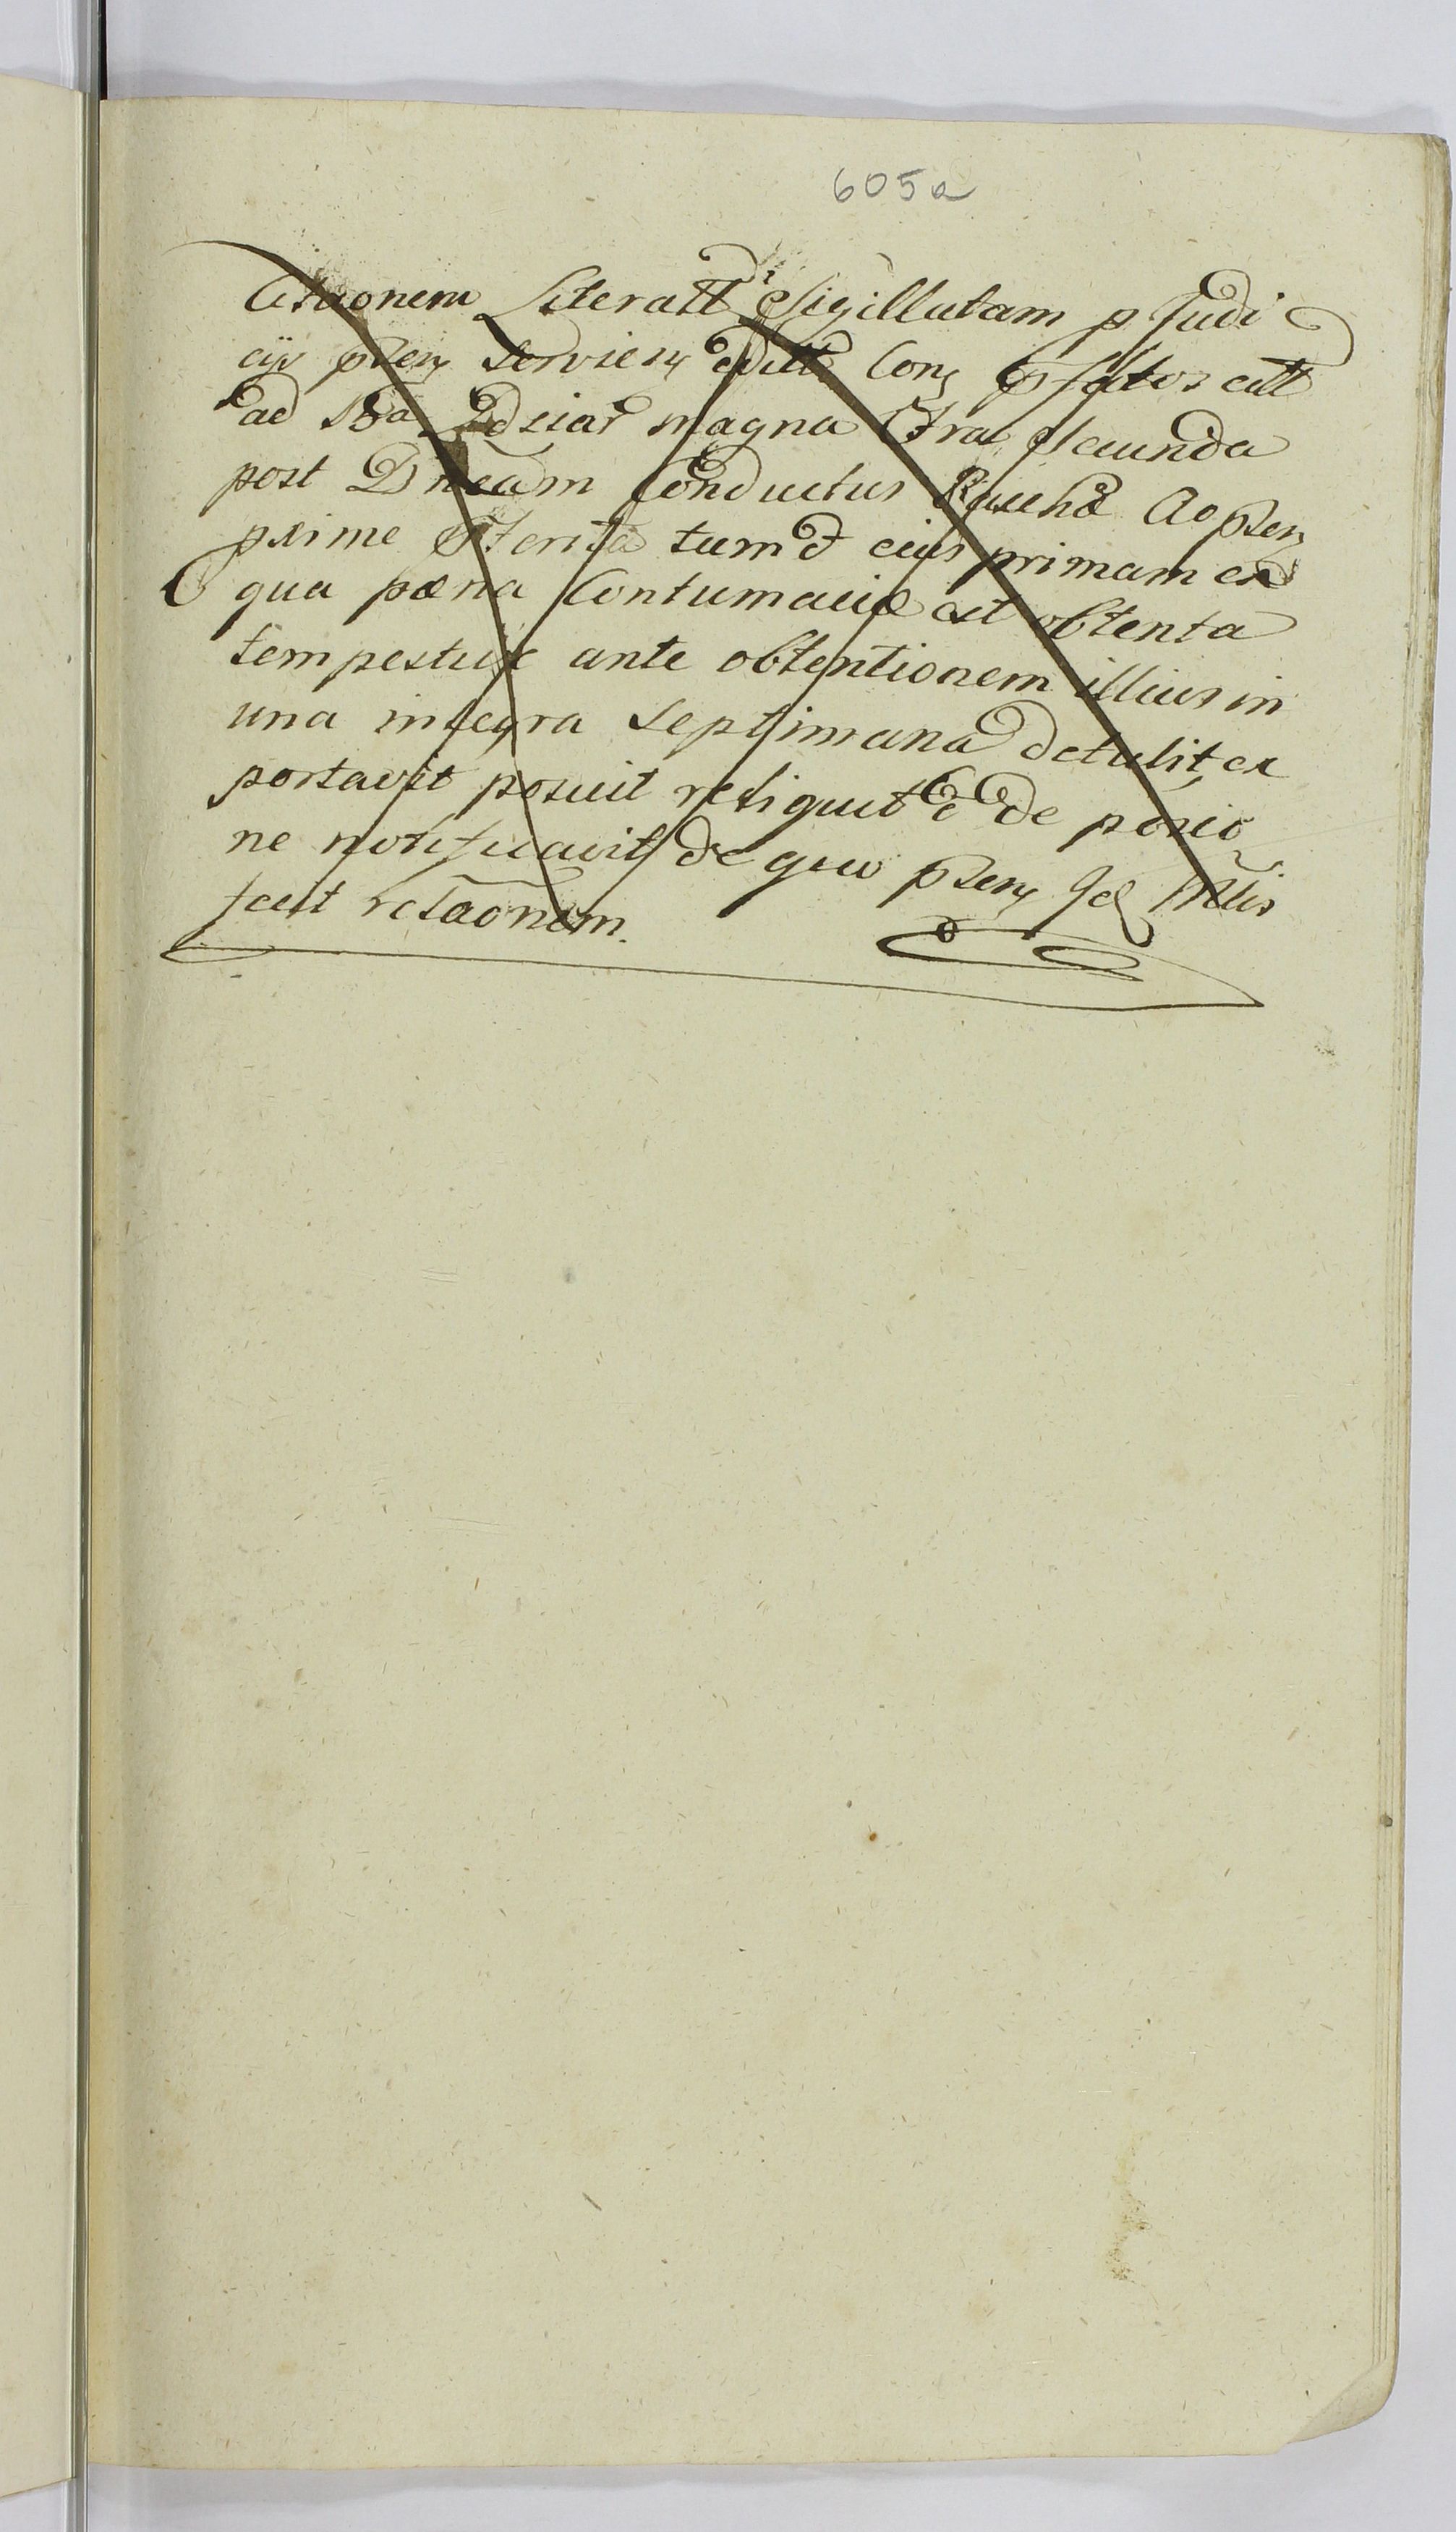 605a
Citaonem Literatt Sigillatam p Judi
cijs psen servien cons pfatos citt
ad magna fra Secunda
post Dnicam Conductus Paschæ Ao psen
pxime pterita tum & eius primam ex
qua pæna Contumaciæ est obtenta
tempestive ante obtentionem illius in
una integra septimana detulit, ex
portavit posuit reliquit & de posicio
ne notificavit de quo psen
fecit relaonem.